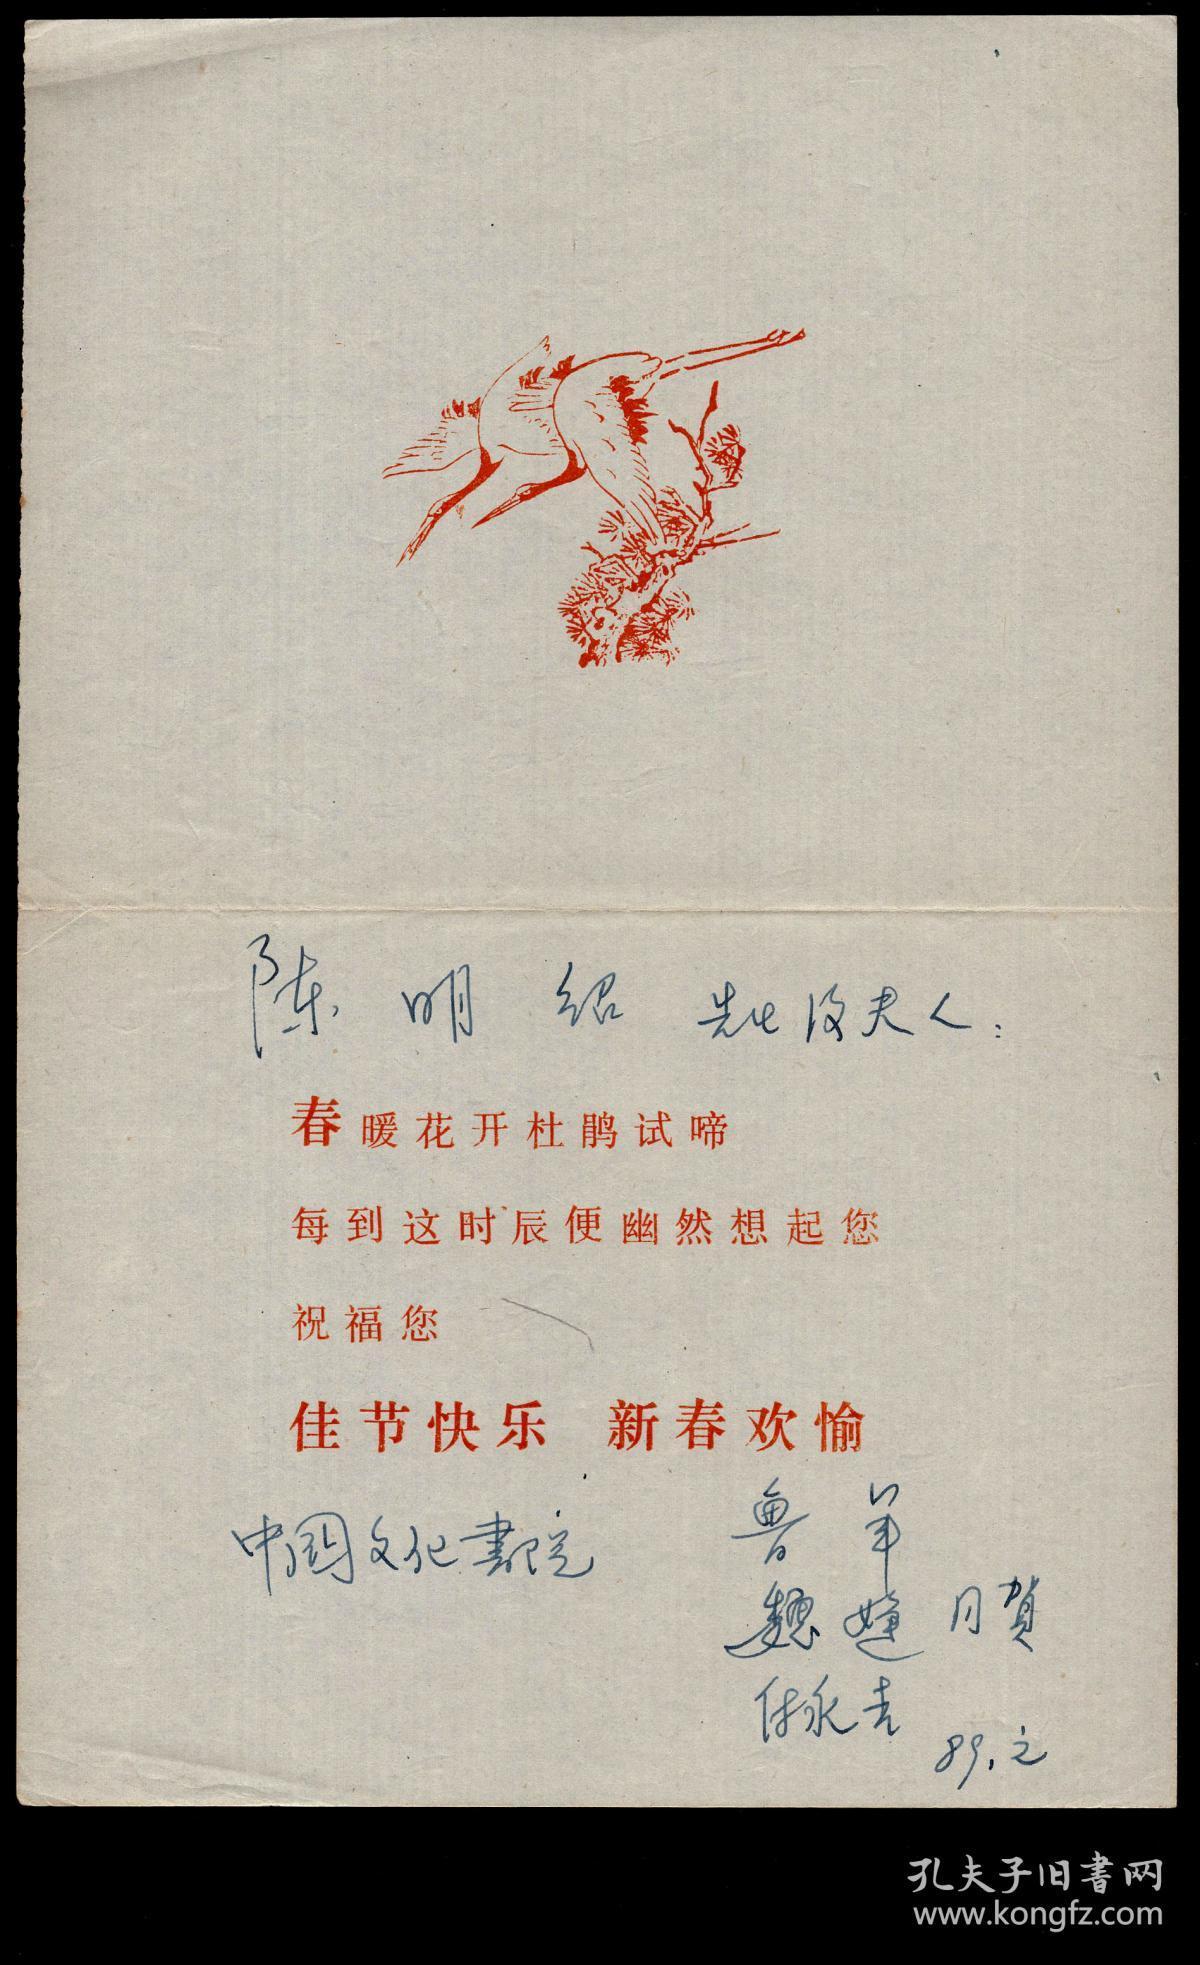 陈明绍 先生及夫人:
春暖花开杜鹃试啼
每到这时辰便幽然想起您
祝福您
佳节快乐 新春欢愉
中国文化書院
鲁 羊
魏
同賀
付永吉
89.
孔夫子旧书网
www.kongfz.com